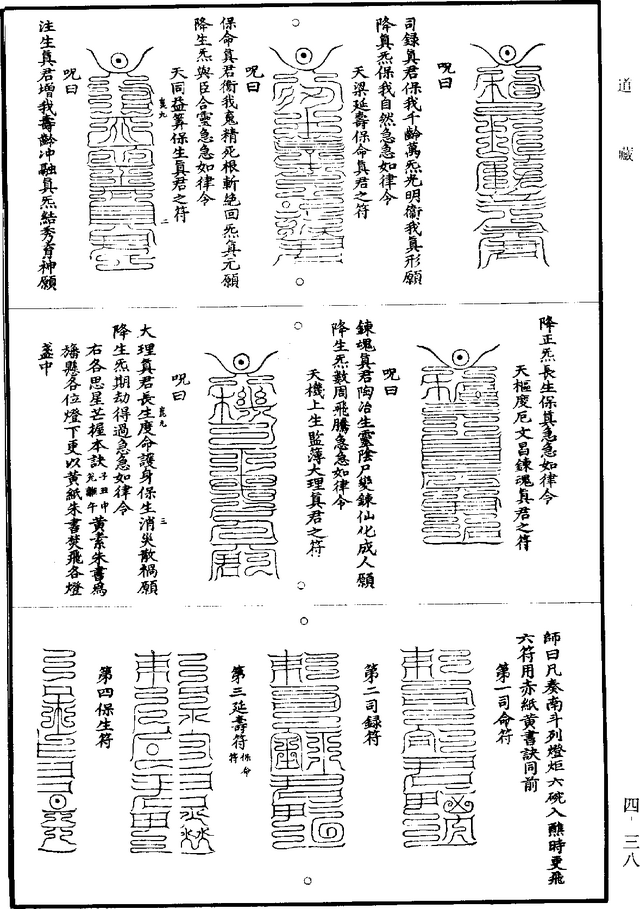 道藏
咒曰
司錄真君保我千齡萬炁光明衛我真形願
降真炁保我自然急急如律令
天梁延壽保命真君之符
咒曰
保命真君衛我鬼精死根斬絕回炁真元願
降生炁與臣合靈急急如律令
天同益筭保生真君之符
真九
二
咒曰
注生真君增我壽齡冲融真炁結秀育神願
降正炁長生保真急急如律令
天樞度厄文昌鍊魂真君之符
咒曰
鍊魂真君陶冶生靈陰尸變鍊仙化成人願
降生炁數周飛騰急急如律令
天機上生監簿大理真君之符
咒曰
真九
三
大理真君長生度命護身保生消災散禍願
降生炁期劫得過急急如律令
右各思星芒握本訣子丑申
兊離午黃素朱書為
旛懸各位燈下更以黃紙朱書焚飛各燈
盞中
師曰凡奏南斗列燈炬六碗入醮時更飛
六符用赤紙黃書訣同前
第一司命符
第二司錄符
第三延壽符保命
符
第四保生符
四-三八